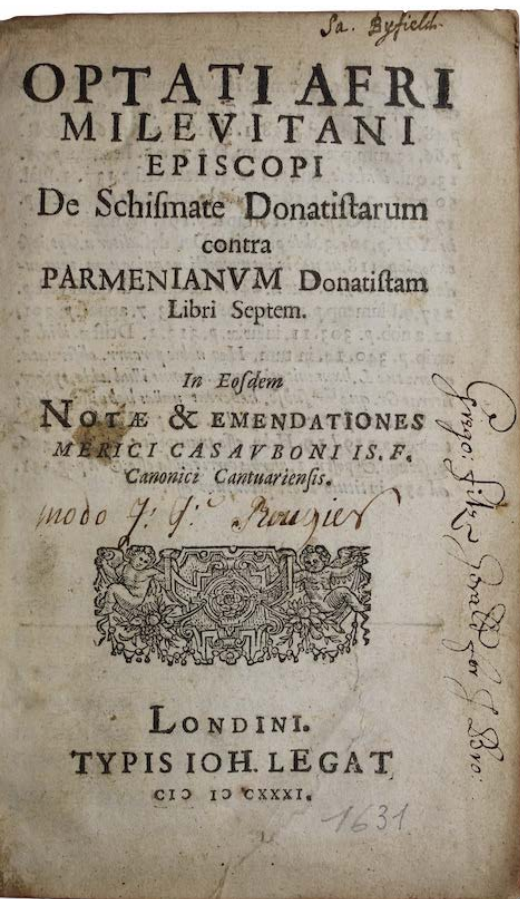 Sa. Byfield.
OPTATI AFRI
MILEVITANI
EPISCOPI
De Schiſmate Donatiſtarum
contra
PARMENIANVM Donatiſtam
Libri Septem.
In Eoſdem
NOTÆ & EMENDATIONES
MERICI CASAVBONI IS. F.
Canonici Cantuarienſis.
modo J: J: Rougier
LONDINI.
TYPIS IOH. LEGAT
CIↃ IↃ CXXXI.
1631